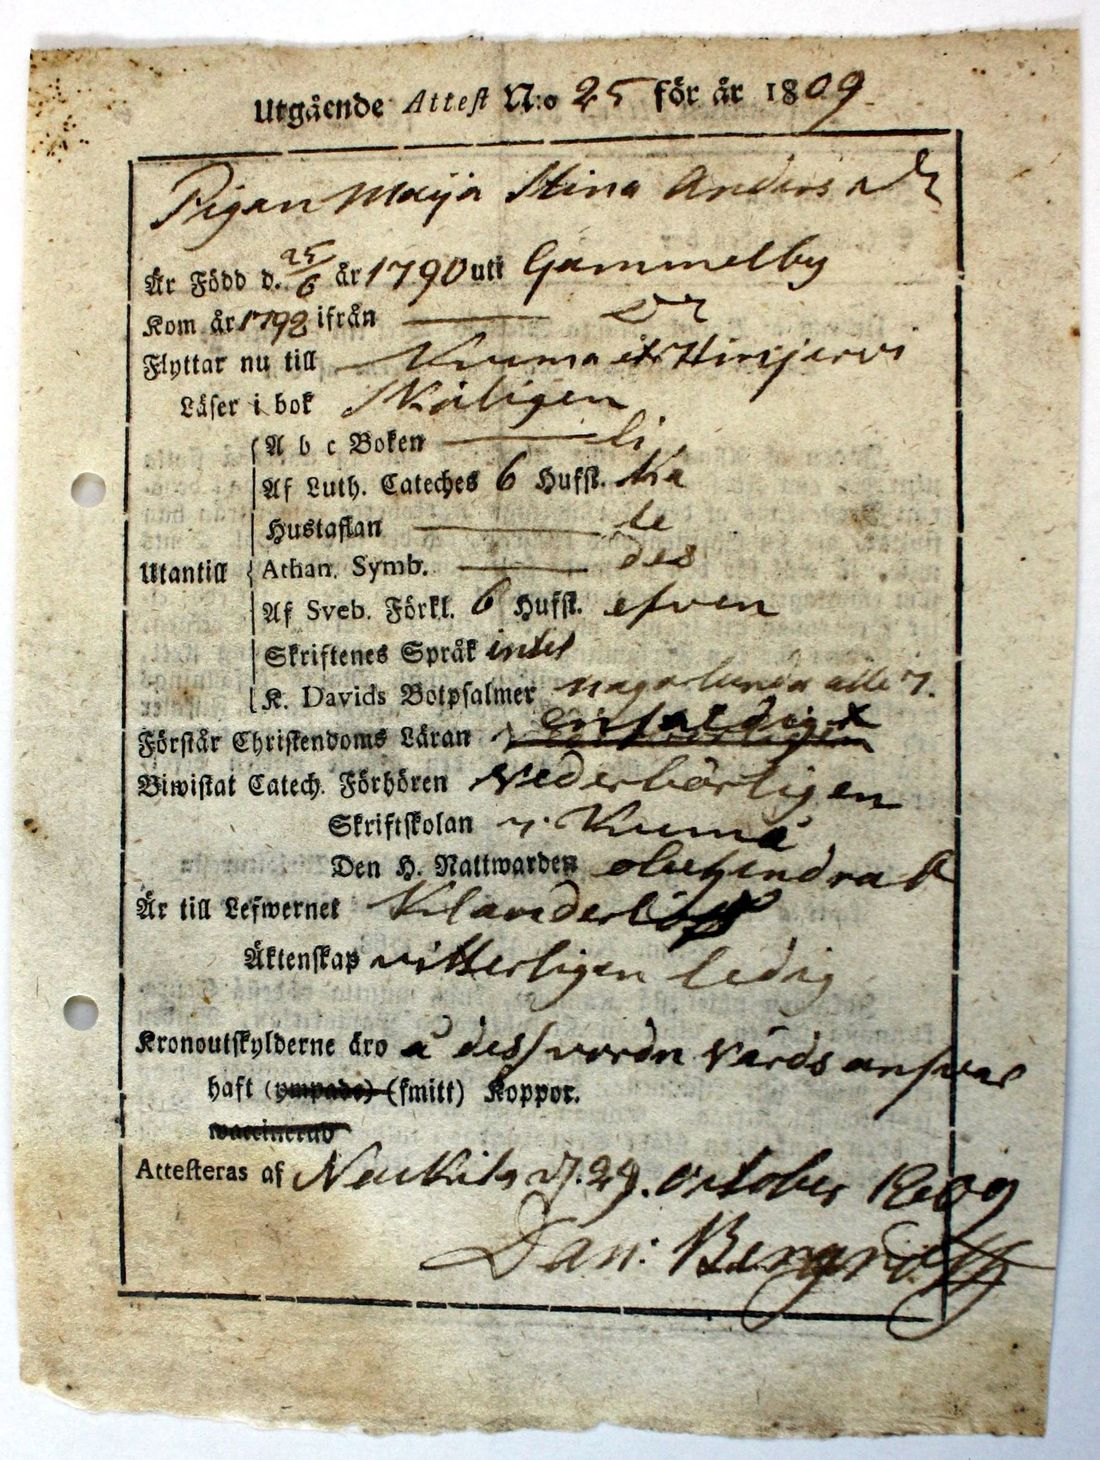 Utgående Attest N:o 25 för år 1809
Pigan Maija Stina Anders
Är Född d. 25/6 år 1790 uti Gammelby
Kom år 1792 ifrån
Flyttar nu till Kuma
Läser i bok Skäligen
A b c Boken li
Af Luth. Cateches 6 Hufst. ka
Hustaflan le
Utantill Athan. Symb. des
Af Sveb. Förkl. 6 Hufst. efven
Skriftenes Språk intet
K. Davids Botpsalmer några
Förstår Christendoms Läran Enfaldigt
Biwistat Catech. Förhören Vederbörligen
Skriftskolan i Kumå
Den H. Nattwarden obehindrat
Är till Lefwernet Klanderlös
Äktenskap vitterligen ledig
Kronoutskylderne äro å dess vårds answar
haft (ympade) (smitt) Koppor.
waccinerad
Attesteras af Nackila d. 29. October 1809
Dan: Bergroth